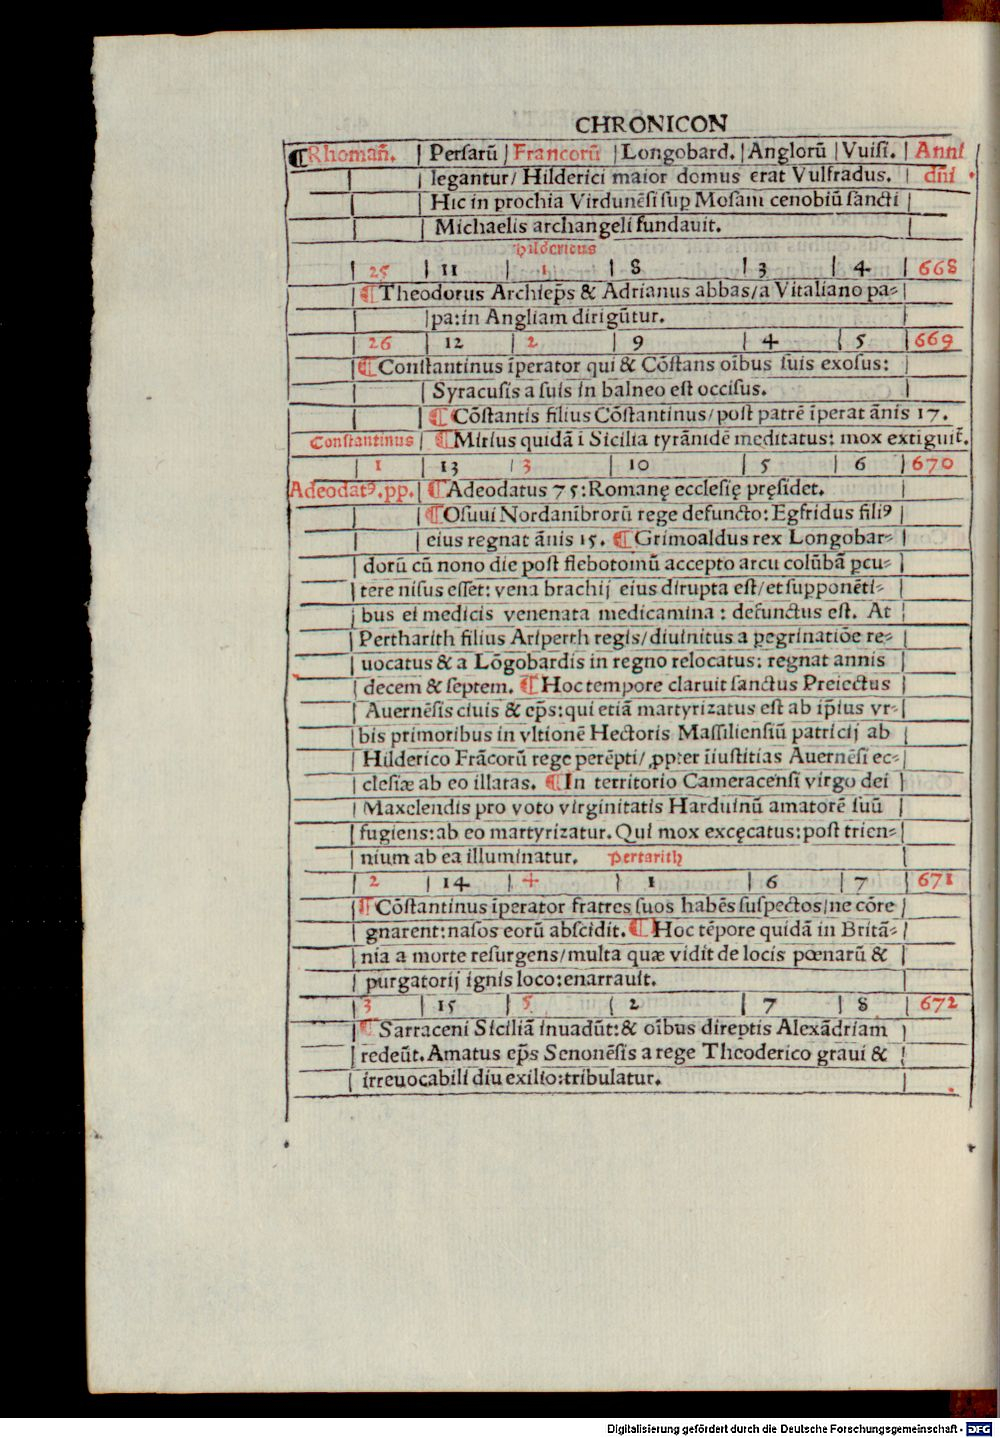 CHRONICON
¶Rhomañ. Persarū Francorū Longobard. Anglorū Vuisi. Anni
legantur/ Hilderici maior domus erat Vulfradus. dñi
Hic in prochia Virdunēsi sup Mosam cenobiū sancti
Michaelis archangeli fundauit.
hildericus
25 11 1 8 3 4 668
¶Theodorus Archiep̄s & Adrianus abbas/a Vitaliano pa-
pa:in Angliam dirigūtur.
26 12 2 9 4 5 669
¶Constantinus īperator qui & Cōstans oībus suis exosus:
Syracusis a suis in balneo est occisus.
¶Cōstantis filius Cōstantinus/post patrē īperat ānis 17.
Constantinus ¶Mitius quidā i Sicilia tyrānidē meditatus: mox extiguit̄.
1 13 3 10 5 6 670
Adeodatꝰ.pp. ¶Adeodatus 75:Romanę ecclesię pręsidet.
¶Osuui Nordanībrorū rege defuncto: Egfridus filiꝰ
eius regnat ānis 15. ¶Grimoaldus rex Longobar-
dorū cū nono die post flebotomū accepto arcu colūbā ꝑcu-
tere nisus esset: vena brachij eius dirupta est/et supponēti-
bus ei medicis venenata medicamina: defunctus est. At
Pertharith filius Ariperth regis/diuinitus a ꝑegrinatiōe re-
uocatus & a Lōgobardis in regno relocatus: regnat annis
decem & septem. ¶Hoc tempore claruit sanctus Preiectus
Auernēsis ciuis & ep̄s:qui etiā martyrizatus est ab ip̄ius vr-
bis primoribus in vltionē Hectoris Massiliensiū patricij ab
Hilderico Frācorū rege perēpti/ ꝓpter īiustitias Auernēsi ec-
clesiæ ab eo illatas. ¶In territorio Cameracensi virgo dei
Maxelendis pro voto virginitatis Harduinū amatorē suū
fugiens:ab eo martyrizatur. Qui mox excęcatus:post trien-
nium ab ea illuminatur. pertarith
2 14 4 1 6 7 671
¶Cōstantinus īperator fratres suos habēs suspectos/ne cōre
gnarent:nasos eorū abscidit. ¶Hoc tēpore quidā in Britā-
nia a morte resurgens/multa quæ vidit de locis pœnarū &
purgatorij ignis loco:enarrauit.
3 15 5 2 7 8 672
¶Sarraceni Siciliā inuadūt:& oībus direptis Alexādriam
redeūt. Amatus ep̄s Senonēsis a rege Theoderico graui &
irreuocabili diu exilio:tribulatur.
Digitalisierung gefördert durch die Deutsche Forschungsgemeinschaft - DFG